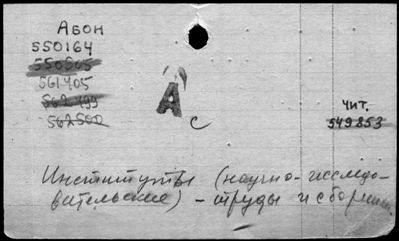 Абон
550164
550865
561405
562499
562500
А
с
Чит.
549853
Институты (научно-исследо-
вательские) - труды и сборник.